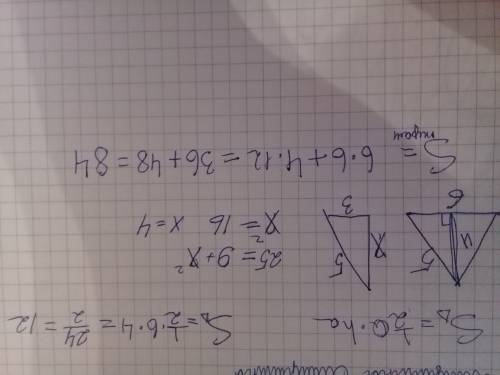 S△ = 1/2 a·ha   S△ = 1/2·6·4 = 24/2 = 12
5 6
5 x 3
25 = 9 + x²
x² = 16   x = 4
Sпирам = 6·6 + 4·12 = 36 + 48 = 84